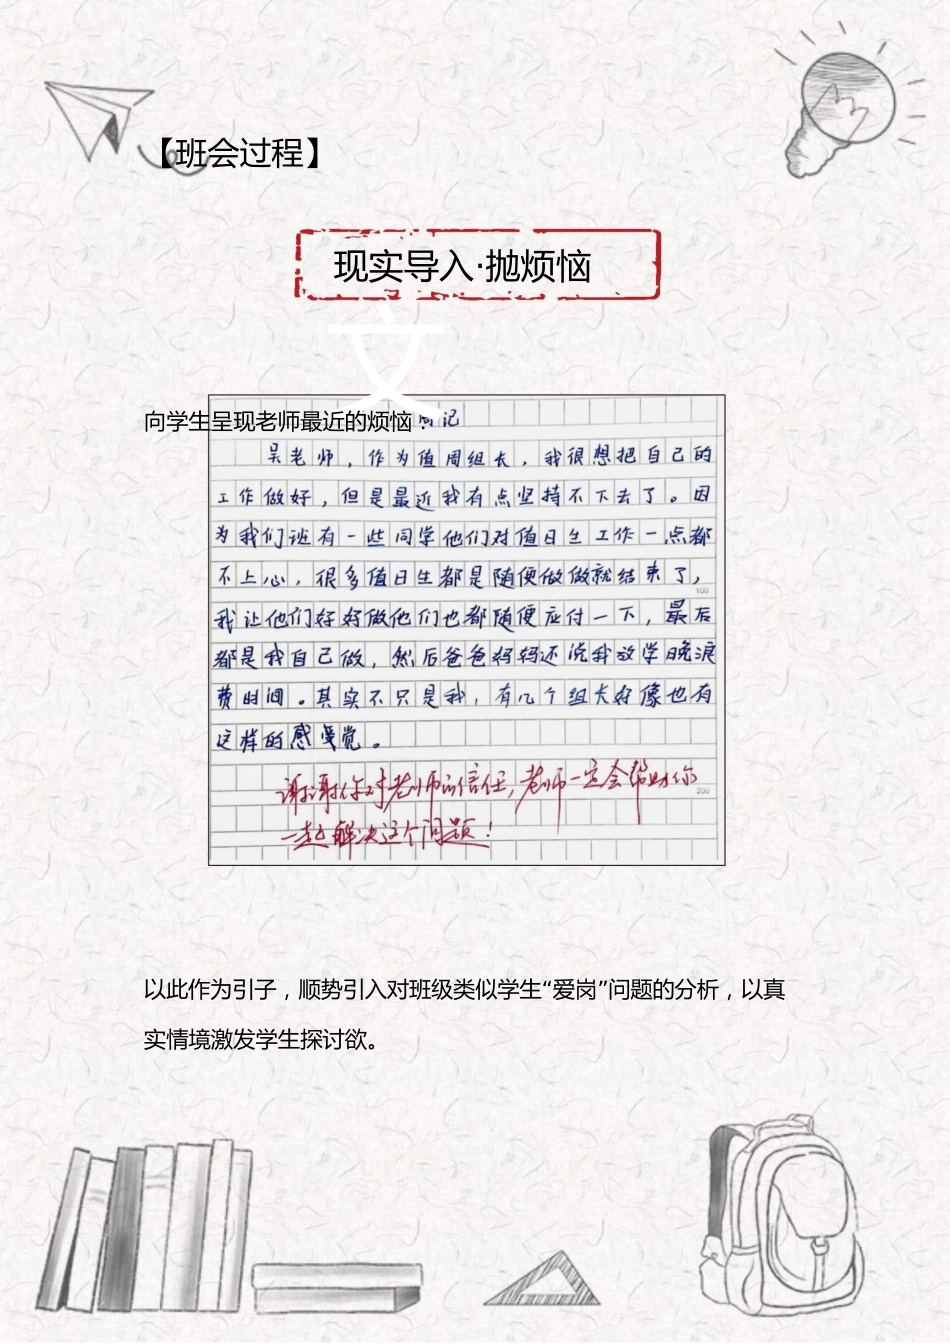 【班会过程】
现实导入·抛烦恼
文
向学生呈现老师最近的烦恼：
周记
吴老师，作为值周组长，我很想把自己的
工作做好，但是最近我有点坚持不下去了。因
为我们班有一些同学他们对值日生工作一点都
不上心，很多值日生都是随便做做就结束了，
100
我让他们好好做他们也都随便应付一下，最后
都是我自己做，然后爸爸妈妈还说我放学晚浪
费时间。其实不只是我，有几个组长好像也有
这样的感受觉。
谢谢你对老师的信任，老师一定会帮助你
200
一起解决这个问题！
以此作为引子，顺势引入对班级类似学生“爱岗”问题的分析，以真
实情境激发学生探讨欲。